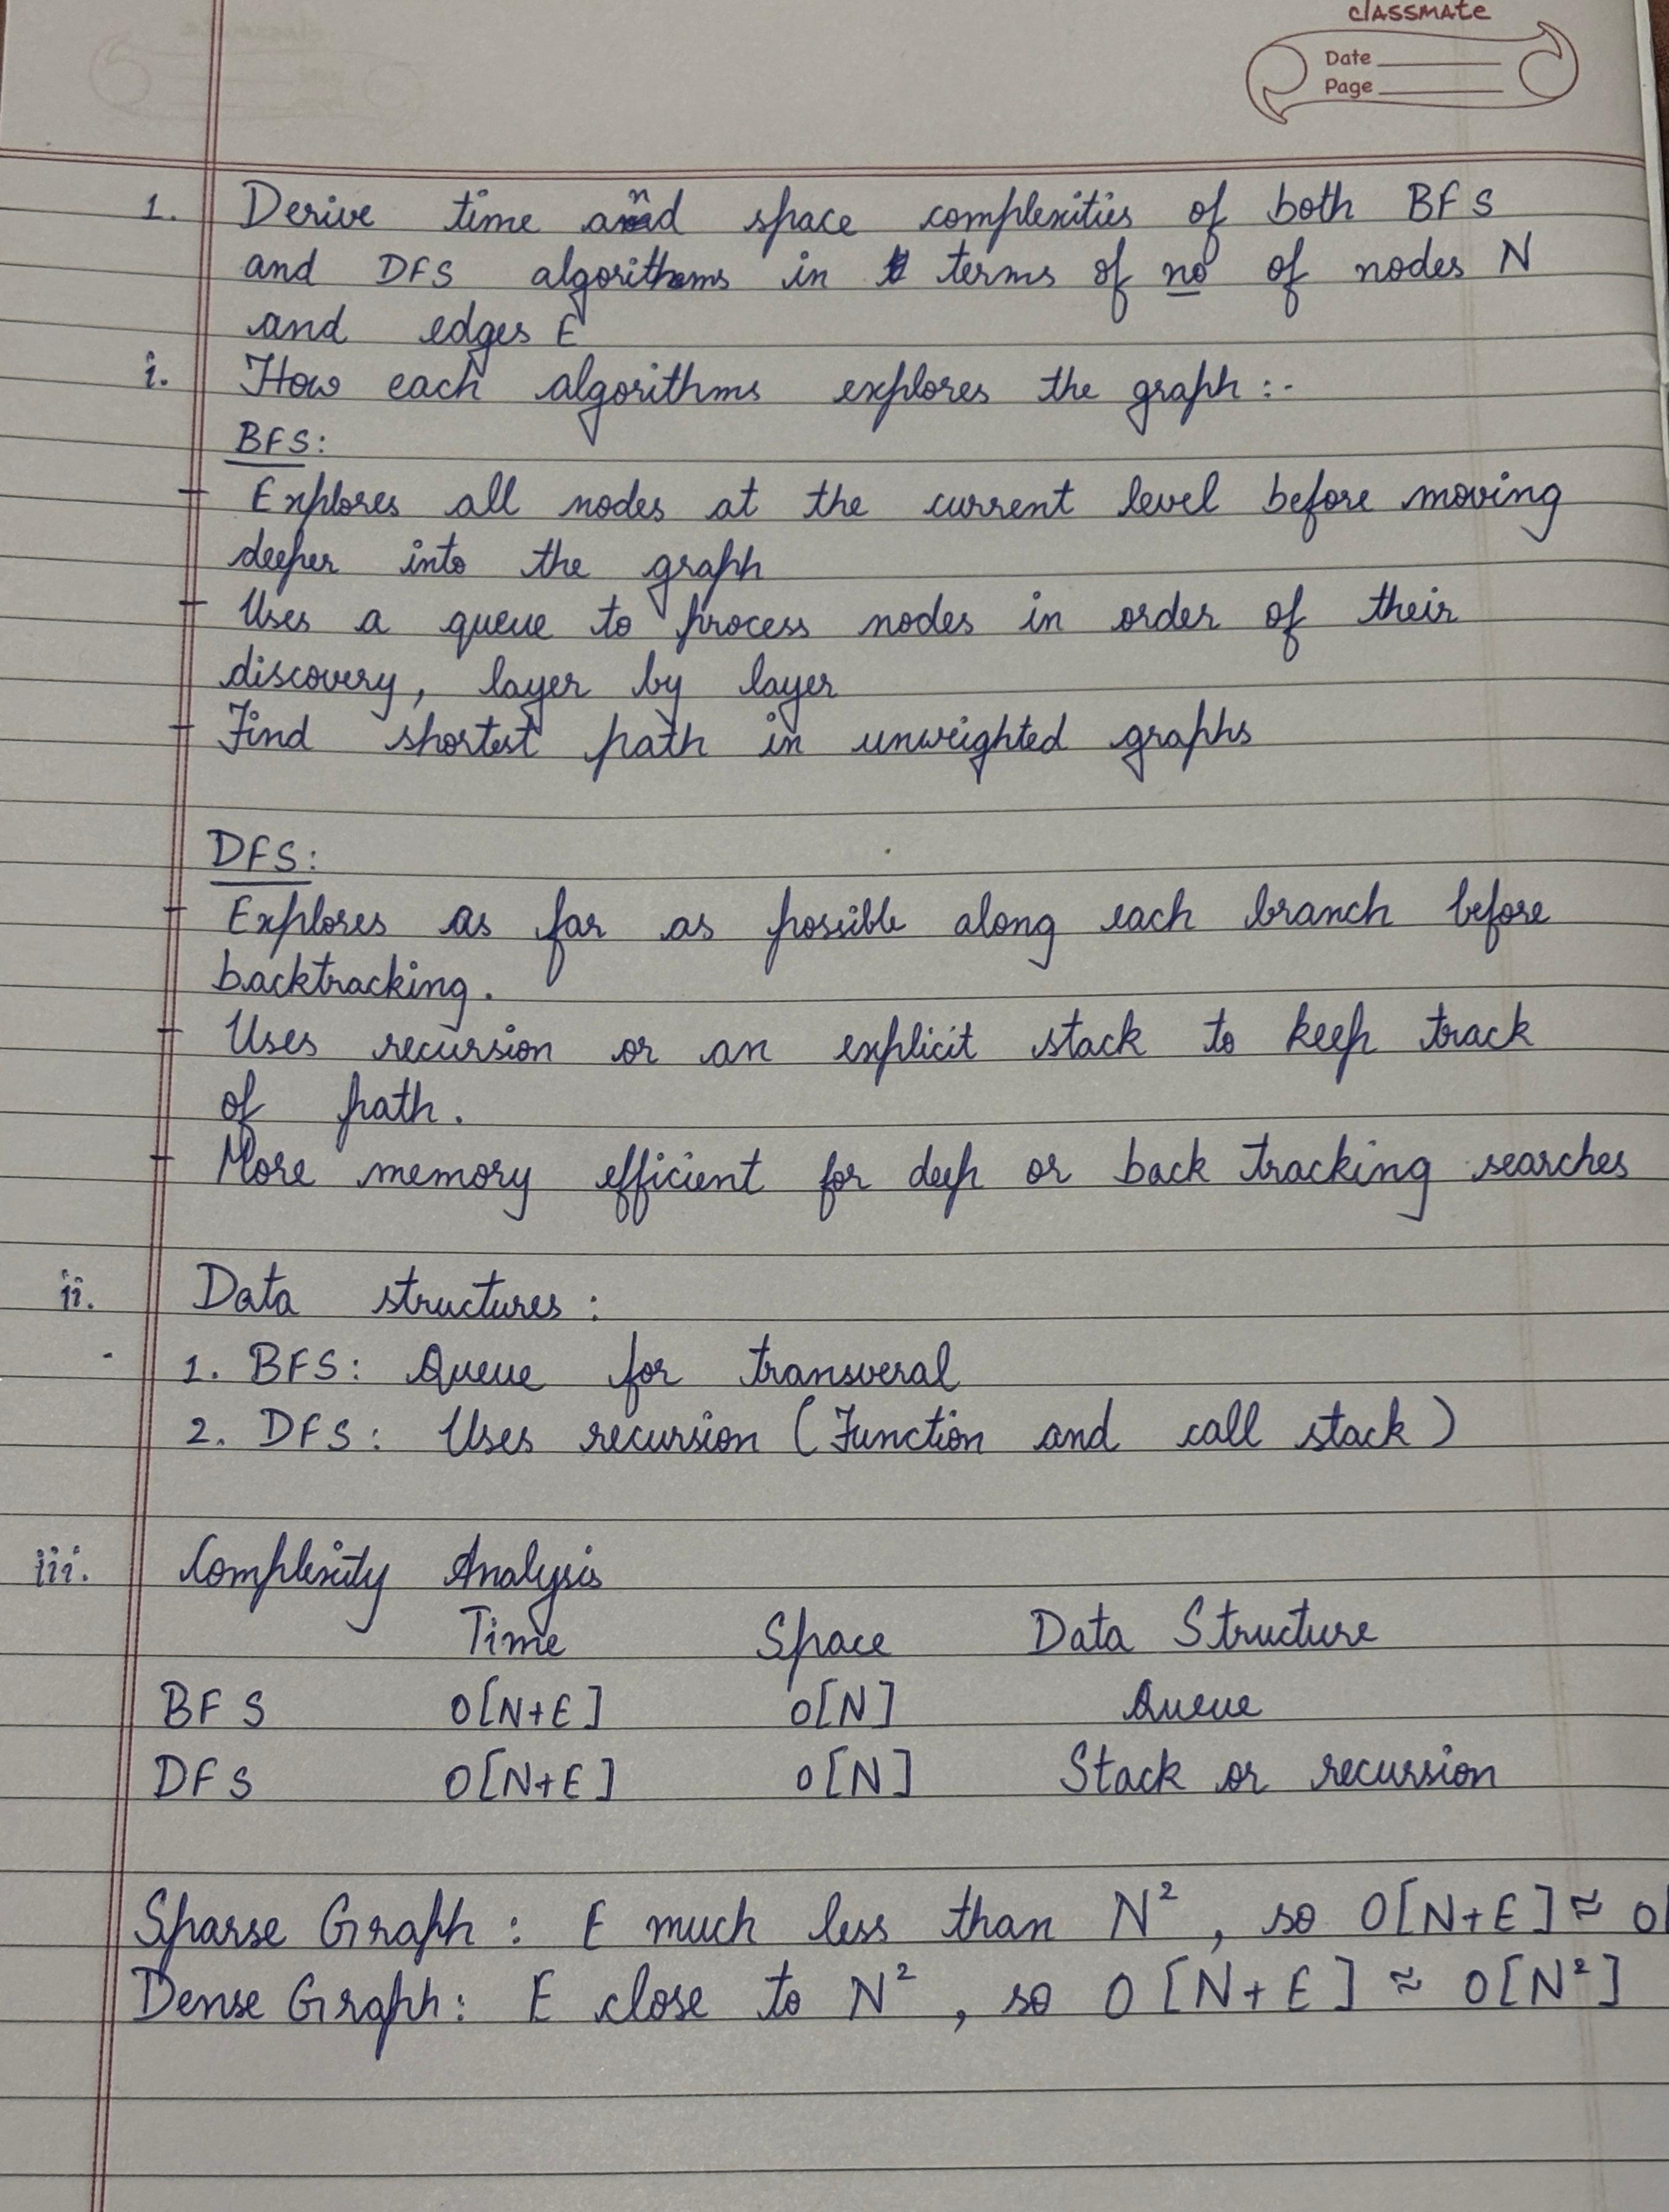 classmate
Date
Page
1. Derive time and space complexities of both BFS
and DFS algorithms in terms of no of nodes N
and edges E
i. How each algorithms explores the graph :-
BFS:
- Explores all nodes at the current level before moving
deeper into the graph
- Uses a queue to process nodes in order of their
discovery, layer by layer
- Find shortest path in unweighted graphs
DFS:
- Explores as far as possible along each branch before
backtracking.
- Uses recursion or an explicit stack to keep track
of path.
- More memory efficient for deep or back tracking searches
ii. Data structures :
- 1. BFS: Queue for transveral
2. DFS: Uses recursion (Function and call stack)
iii. Complexity Analysis
Time Space Data Structure
BFS O[N+E] O[N] Queue
DFS O[N+E] O[N] Stack or recursion
Sparse Graph : E much less than N², so O[N+E] ≈ O[
Dense Graph: E close to N², so O[N+E] ≈ O[N²]